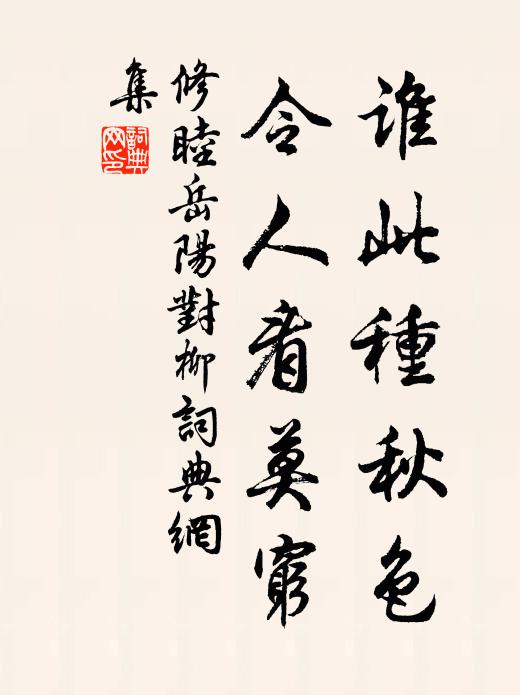 誰此種秋色
令人看莫窮
修睦岳陽對柳詞典網
集
詞典网印